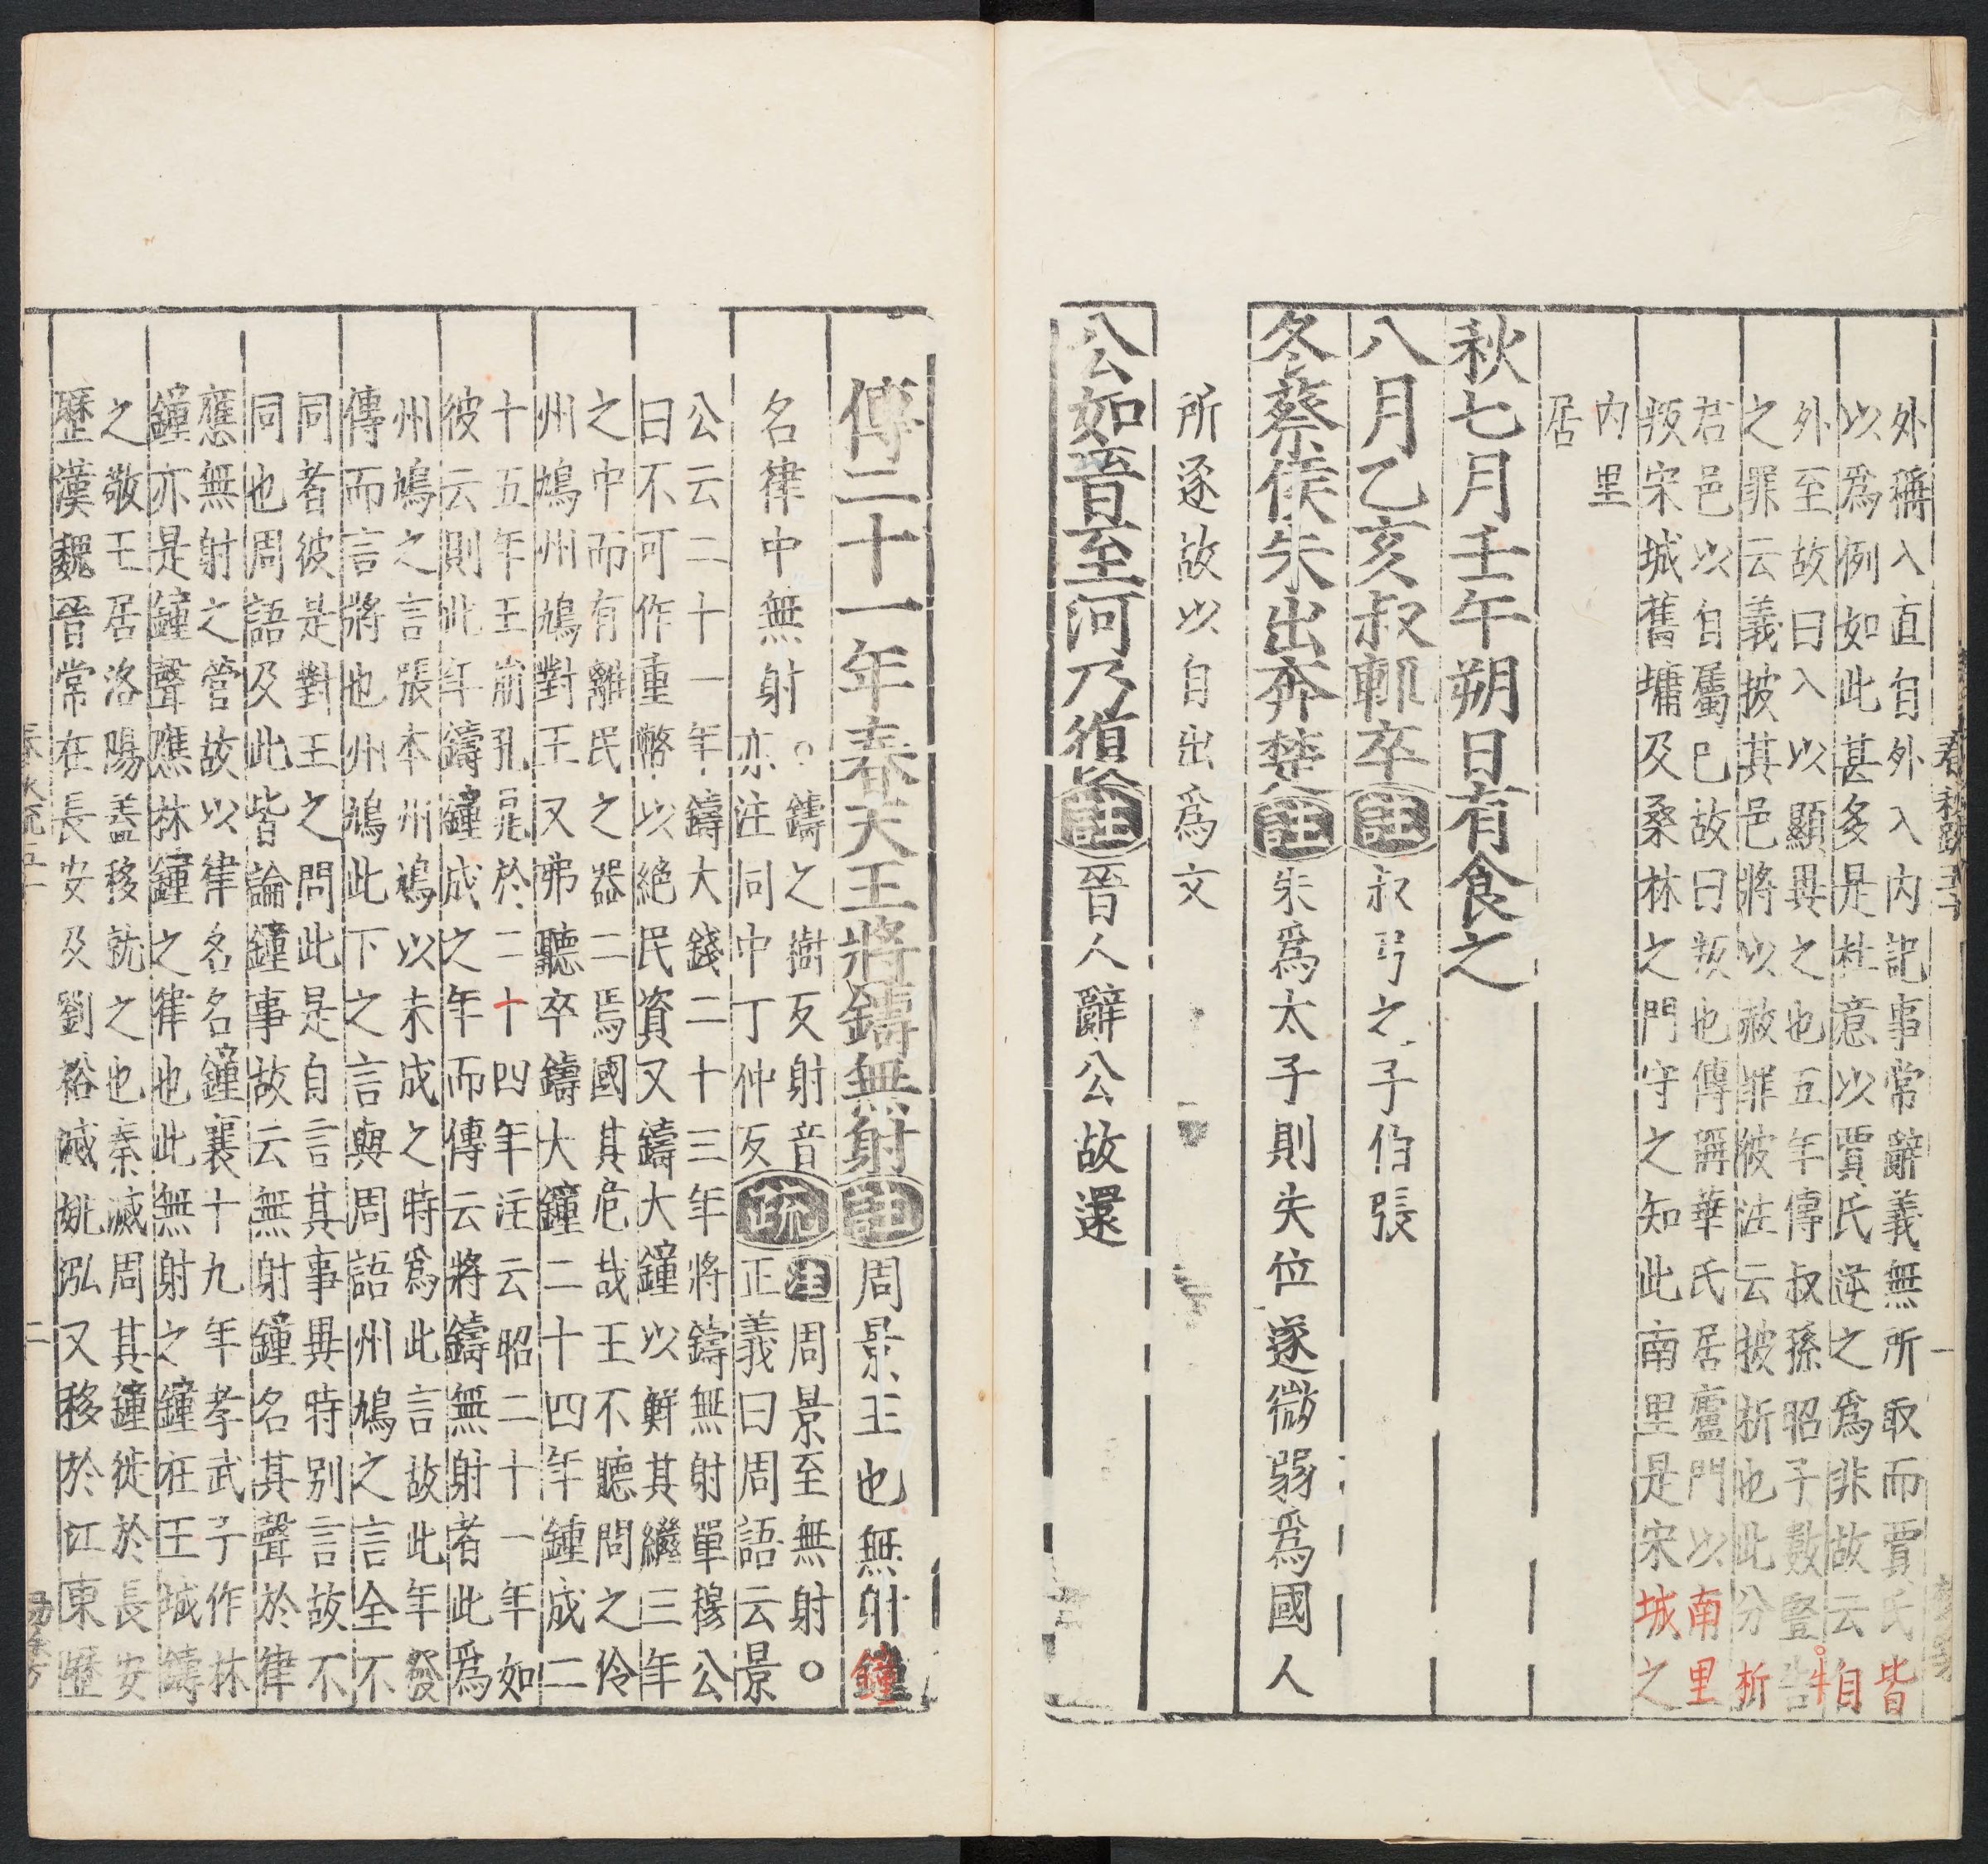 外稱入直自外入内記事常辭義無所取而賈氏皆
以爲例如此甚多是杜意以賈氏逆之爲非故云自
外至故曰入以顯異之也五年傳叔孫昭子數豎牛
之罪云義披其邑將以赦罪彼注云披析也此分析
君邑以自屬已故曰叛也傳稱華氏居廬門以南里
叛宋城舊墉及桑林之門守之知此南里是宋城之
内里
居
秋七月壬午朔日有食之
八月乙亥叔輒卒註叔弓之子伯張
冬蔡侯朱出奔楚註朱爲太子則失位遂微弱爲國人
所逐故以自出爲文
公如晉至河乃復註晉人辭公故還
傳二十一年春天王將鑄無射註周景王也無射鐘
名律中無射。鑄之樹反射音
亦注同中丁仲反疏注周景至無射。
正義曰周語云景
公云二十一年鑄大錢二十三年將鑄無射單穆公
曰不可作重幣以絕民資又鑄大鐘以鮮其繼三年
之中而有離民之器二焉國其危哉王不聽問之伶
州鳩州鳩對王又弗聽卒鑄大鐘二十四年鐘成二
十五年王崩孔晁於二十四年注云昭二十一年如
彼云則此年鑄鐘成之年而傳云將鑄無射者此爲
州鳩之言張本州鳩以未成之時爲此言故此年發
傳而言將也州鳩此下之言與周語州鳩之言全不
同者彼是對王之問此是自言其事異時别言故不
同也周語及此皆論鐘事故云無射鐘名其聲於律
應無射之管故以律名名鐘襄十九年季武子作林
鐘亦是鐘聲應林鐘之律也此無射之鐘在王城鑄
之敬王居洛陽蓋移就之也秦滅周其鐘徙於長安
歷漢魏晉常在長安及劉裕滅姚泓又移於江東歷